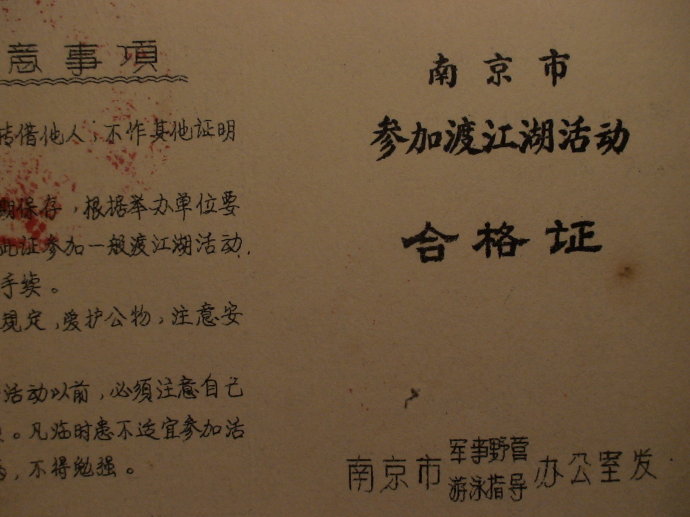 意事項
转借他人，不作其他证明
期保存，根据举办单位要
此证参加一般渡江湖活动，
手续。
规定，爱护公物，注意安
活动以前，必须注意自己
。凡临时患不适宜参加活
，不得勉强。
南京市
参加渡江湖活动
合格证
南京市军事野营游泳指导办公室发